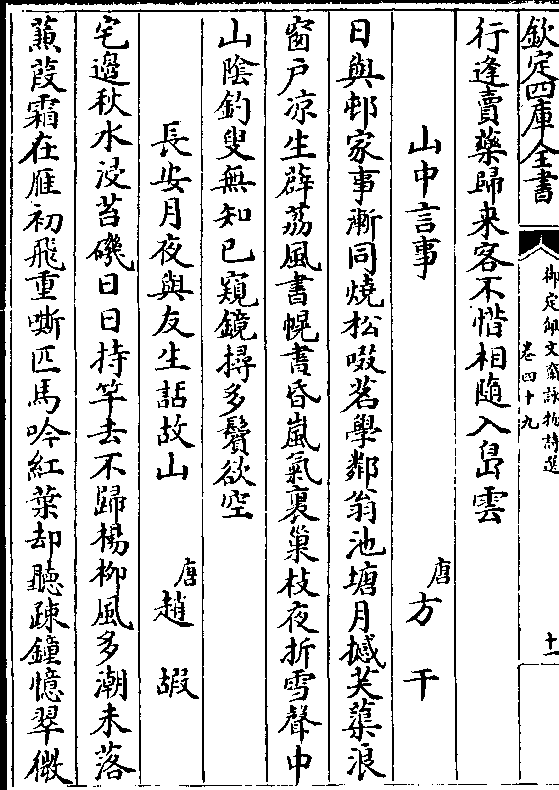 欽定四庫全書
御定佩文齋詠物詩選
卷四十九
十一
行逢賣藥歸來客不惜相隨入島雲
山中言事
唐方干
日與邨家事漸同燒松啜茗學鄰翁池塘月撼芙蕖浪
窗户凉生薜荔風書幌晝昏嵐氣裏巢枝夜折雪聲中
山陰釣叟無知己窺鏡撏多鬢欲空
長安月夜與友生話故山
唐趙嘏
宅邉秋水浸苔磯日日持竿去不歸楊栁風多潮未落
蒹葭霜在雁初飛重嘶匹馬吟紅葉却聽疎鐘憶翠微